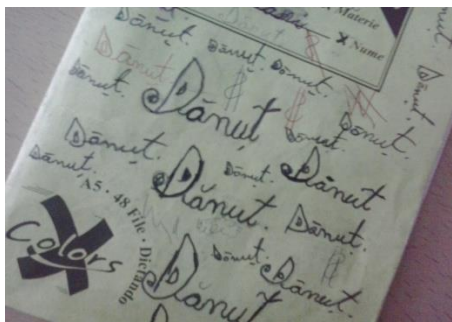 Materie
X Nume
Dănuț.
Dănuț.
Dănuț.
Dănuț.
Dănuț
Dănuț.
Dănuț
Dănuț.
Dănuț.
Dănuț.
Dănuț.
Dănuț.
Dănuț
Dănuț.
Dănuț.
Dănuț.
Dănuț.
Dănuț.
Dănuț.
A5 · 48 File · Dictando
Colors